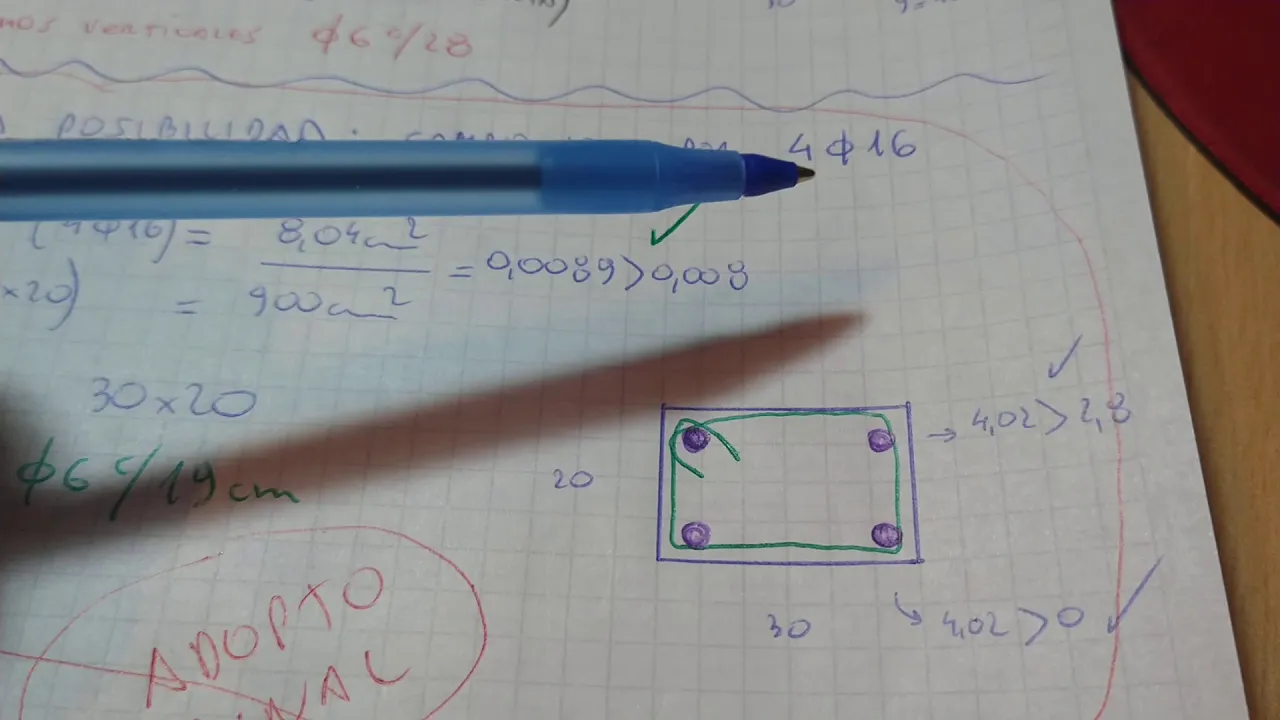 VERTICALES φ6 c/28
POSIBILIDAD: 4φ16
(4φ16) = 8,04cm²
x20) = 900cm² = 0,0089>0,008
30x20
φ6 c/19cm
20
30
→ 4,02>2,8 ✓
↳ 4,02>0 ✓
ADOPTO